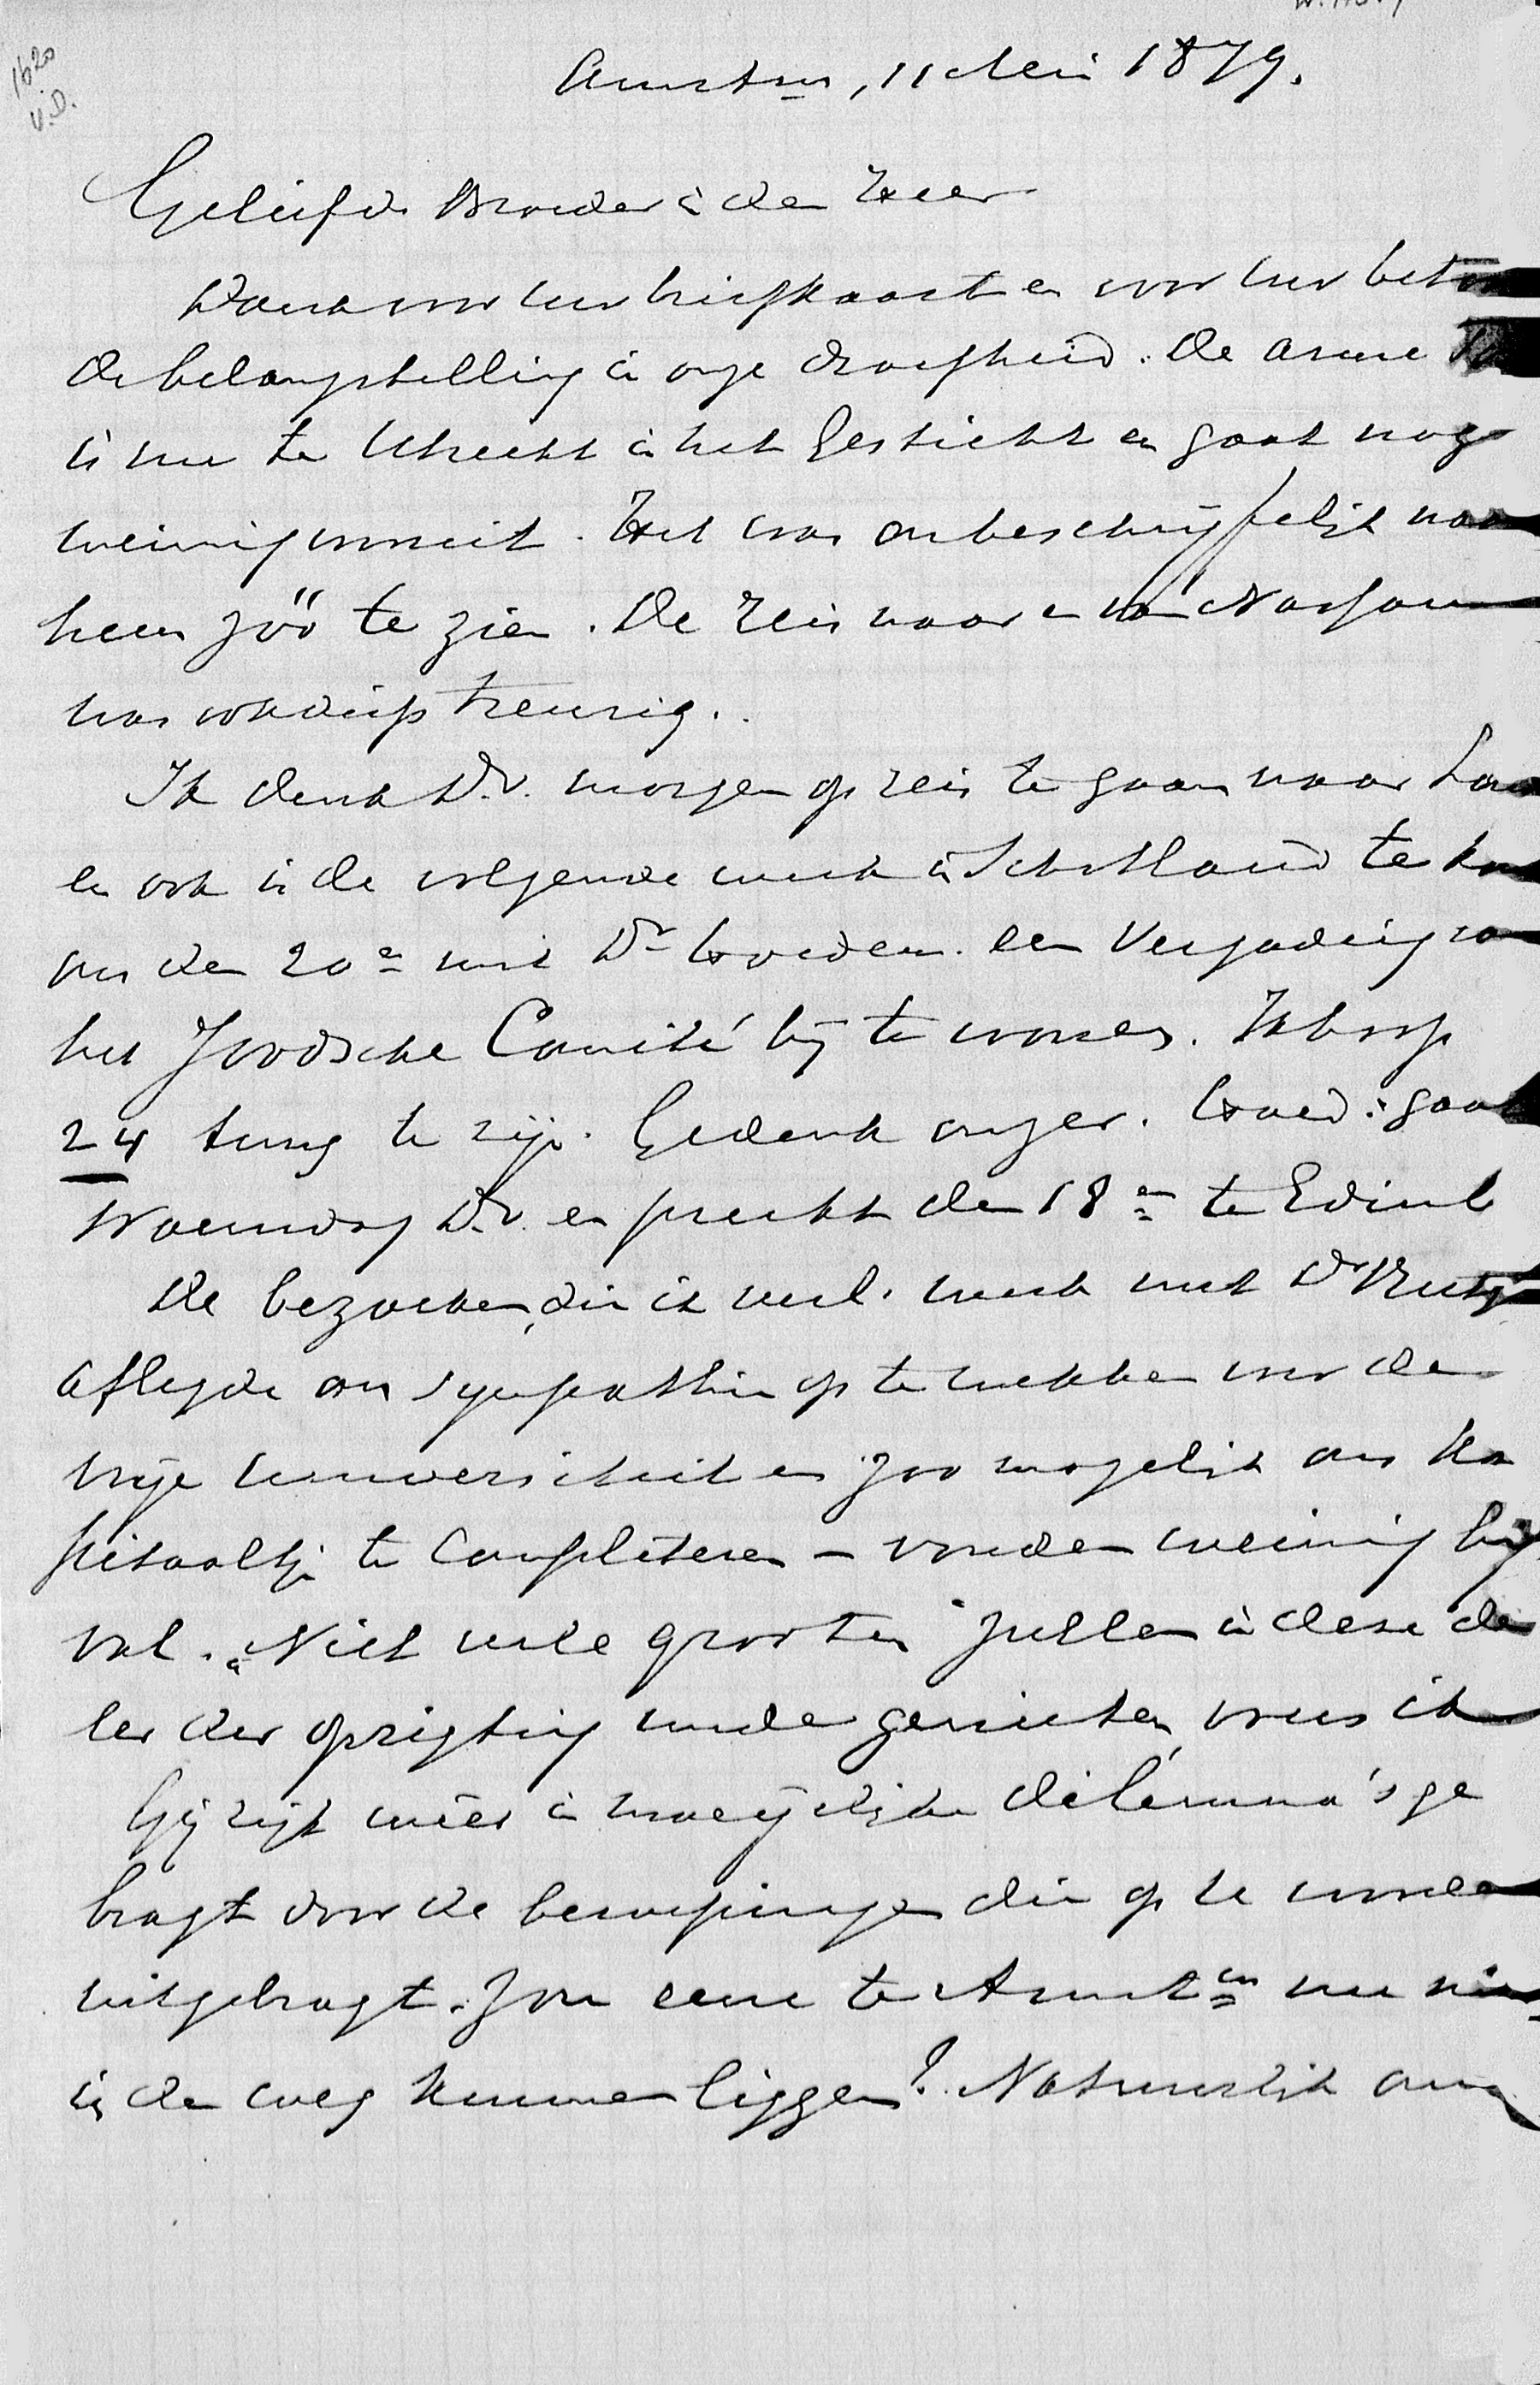 1620
v.D.
Amstm, 11 Mei 1879.
Geliefde Broeder in den Heer
Dank voor uw briefkaart en voor uw beto
de belangstelling in onze droefheid. De arme
is nu te Utrecht in het Gesticht en gaat nog
weinig vooruit. Het was onbeschrijfelijk naar
hem zóó te zien. De reis naar en van Nassau
was ook diep treurig.
Ik denk D.V. morgen op reis te gaan naar Lon
en ook in de volgende week in Schotland te ko
om den 20en met Dr Hoedem. een Vergadering van
het Joodsche Comité bij te wonen. Ik hoop
24 terug te zijn. Gedenk onzer. Hoed. gaat
Woensdag D.V. en preekt den 18en te Edinb
De bezoeken, die ik verl. week met Dr Rutg
aflegde om sympathie op te wekken voor de
vrije Universiteit en zoo mogelijk ons ka
pitaaltje te completeren – vonden weinig bij
val. "Niet vele grooten" zullen in deze de
eer der oprigting mede genieten, vrees ik
Gij zijt weêr in moeyelijke dilemma's ge
bragt door de beroepingen die op U worden
uitgebragt. Zou eene te Amstm nu niet
in den weg kunnen liggen? Natuurlijk om